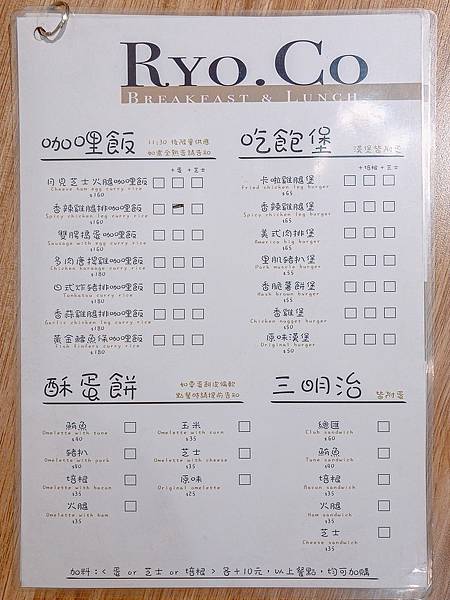 RYO.CO
BREAKFAST & LUNCH
咖哩飯
11:30 後限量供應
+蛋 +芝士
月見芝士火腿咖哩飯
Cheese ham egg curry rice
$160
香辣雞腿排咖哩飯
Spicy chicken leg curry rice
$180
雙腸搗蛋咖哩飯
Sausage with egg curry rice
$160
多肉唐揚雞咖哩飯
Chicken karaage curry rice
$180
日式炸豬排咖哩飯
Tonkatsu curry rice
$180
香蒜雞腿排咖哩飯
Garlic chicken leg curry rice
$180
黃金鱈魚條咖哩飯
Fish finfers curry rice
$180
吃飽堡
漢堡皆附蛋
+培根 +芝士
卡啦雞腿堡
Fried chicken leg burger
$65
香辣雞腿堡
Spicy chicken leg burger
$65
美式肉排堡
America big burger
$65
里肌豬扒堡
Pork muscle burger
$55
香脆薯餅堡
Hash brown burger
$55
香雞堡
Chicken nugget burger
$50
原味漢堡
Original burger
$50
酥蛋餅
點餐時請提前告知
鮪魚
Omelette with tuna
$40
豬扒
Omelette with pork
$40
培根
Omelette with bacon
$35
火腿
Omelette with ham
$35
玉米
Omelette with corn
$35
芝士
Omelette with cheese
$35
原味
Original omelette
$25
三明治
皆附蛋
總匯
Club sandwich
$60
鮪魚
Tuna sandwich
$40
培根
Bacon sandwich
$35
火腿
Ham sandwich
$35
芝士
Cheese sandwich
$35
加料:< 蛋 or 芝士 or 培根 > 各+10元,以上餐點,均可加購